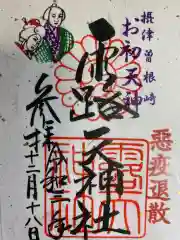 摂津曽根崎
お初天神
露天神社
悪疫退散
参拝 令和二年
十二月十八日